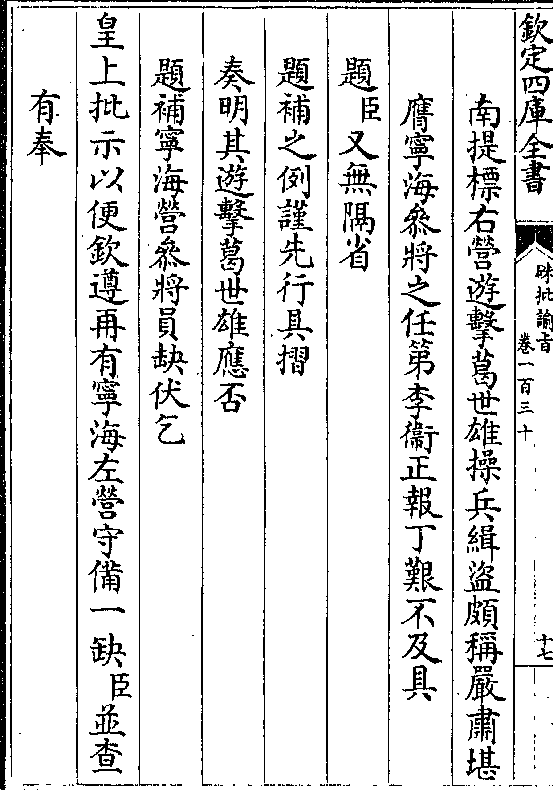 欽定四庫全書
硃批諭旨
卷一百三十
十七
南提標右營遊擊葛世雄操兵緝盜頗稱嚴肅堪
膺寧海叅將之任第李衞正報丁艱不及具
題臣又無隔省
題補之例謹先行具摺
奏明其遊擊葛世雄應否
題補寧海營叅將員缺伏乞
皇上批示以便欽遵再有寧海左營守備一缺臣並查
有奉